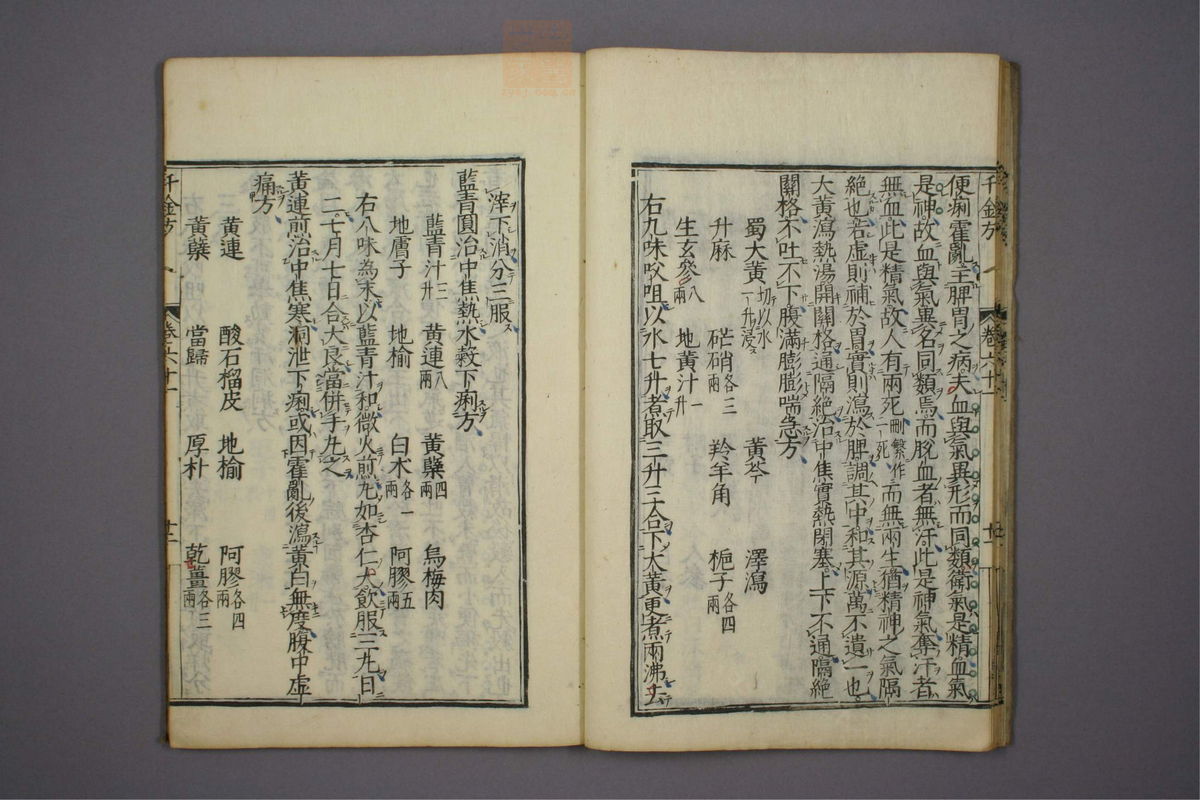 千金方
卷六十一
便痢霍亂主脾胃之病夫血與氣異形而同類衛氣是精血氣
是神故血與氣異名同類焉而脫血者無汗此是神氣奪汗者
無血此是精氣故人有兩死刪繁作一死而無兩生猶精神之氣隔
絶也若虛則補於胃實則瀉於脾調其中和其源萬不遺一也
大黃瀉熱湯開關格通隔絶治中焦實熱閉塞上下不通隔絶
關格不吐不下腹滿膨膨喘急方
蜀大黃切以水一升浸 黃芩 澤瀉
升麻 芒硝各三兩 羚羊角 梔子各四兩
生玄參八兩 地黃汁一升
右九味㕮咀以水七升煮取三升三合下大黃更煮兩沸去
滓下消分三服
藍青圓治中焦熱水穀下痢方
藍青汁三升 黃連八兩 黃蘗四兩 烏梅肉
地膚子 地榆 白朮各一兩 阿膠五兩
右八味為末以藍青汁和微火煎丸如杏仁大飲服三丸日
二七月七日合大良當併手丸之
黃連煎治中焦寒洞泄下痢或因霍亂後瀉黃白無度腹中虛
痛方
黃連 酸石榴皮 地榆 阿膠各四兩
黃蘗 當歸 厚朴 乾薑各三兩
千金方
卷六十一